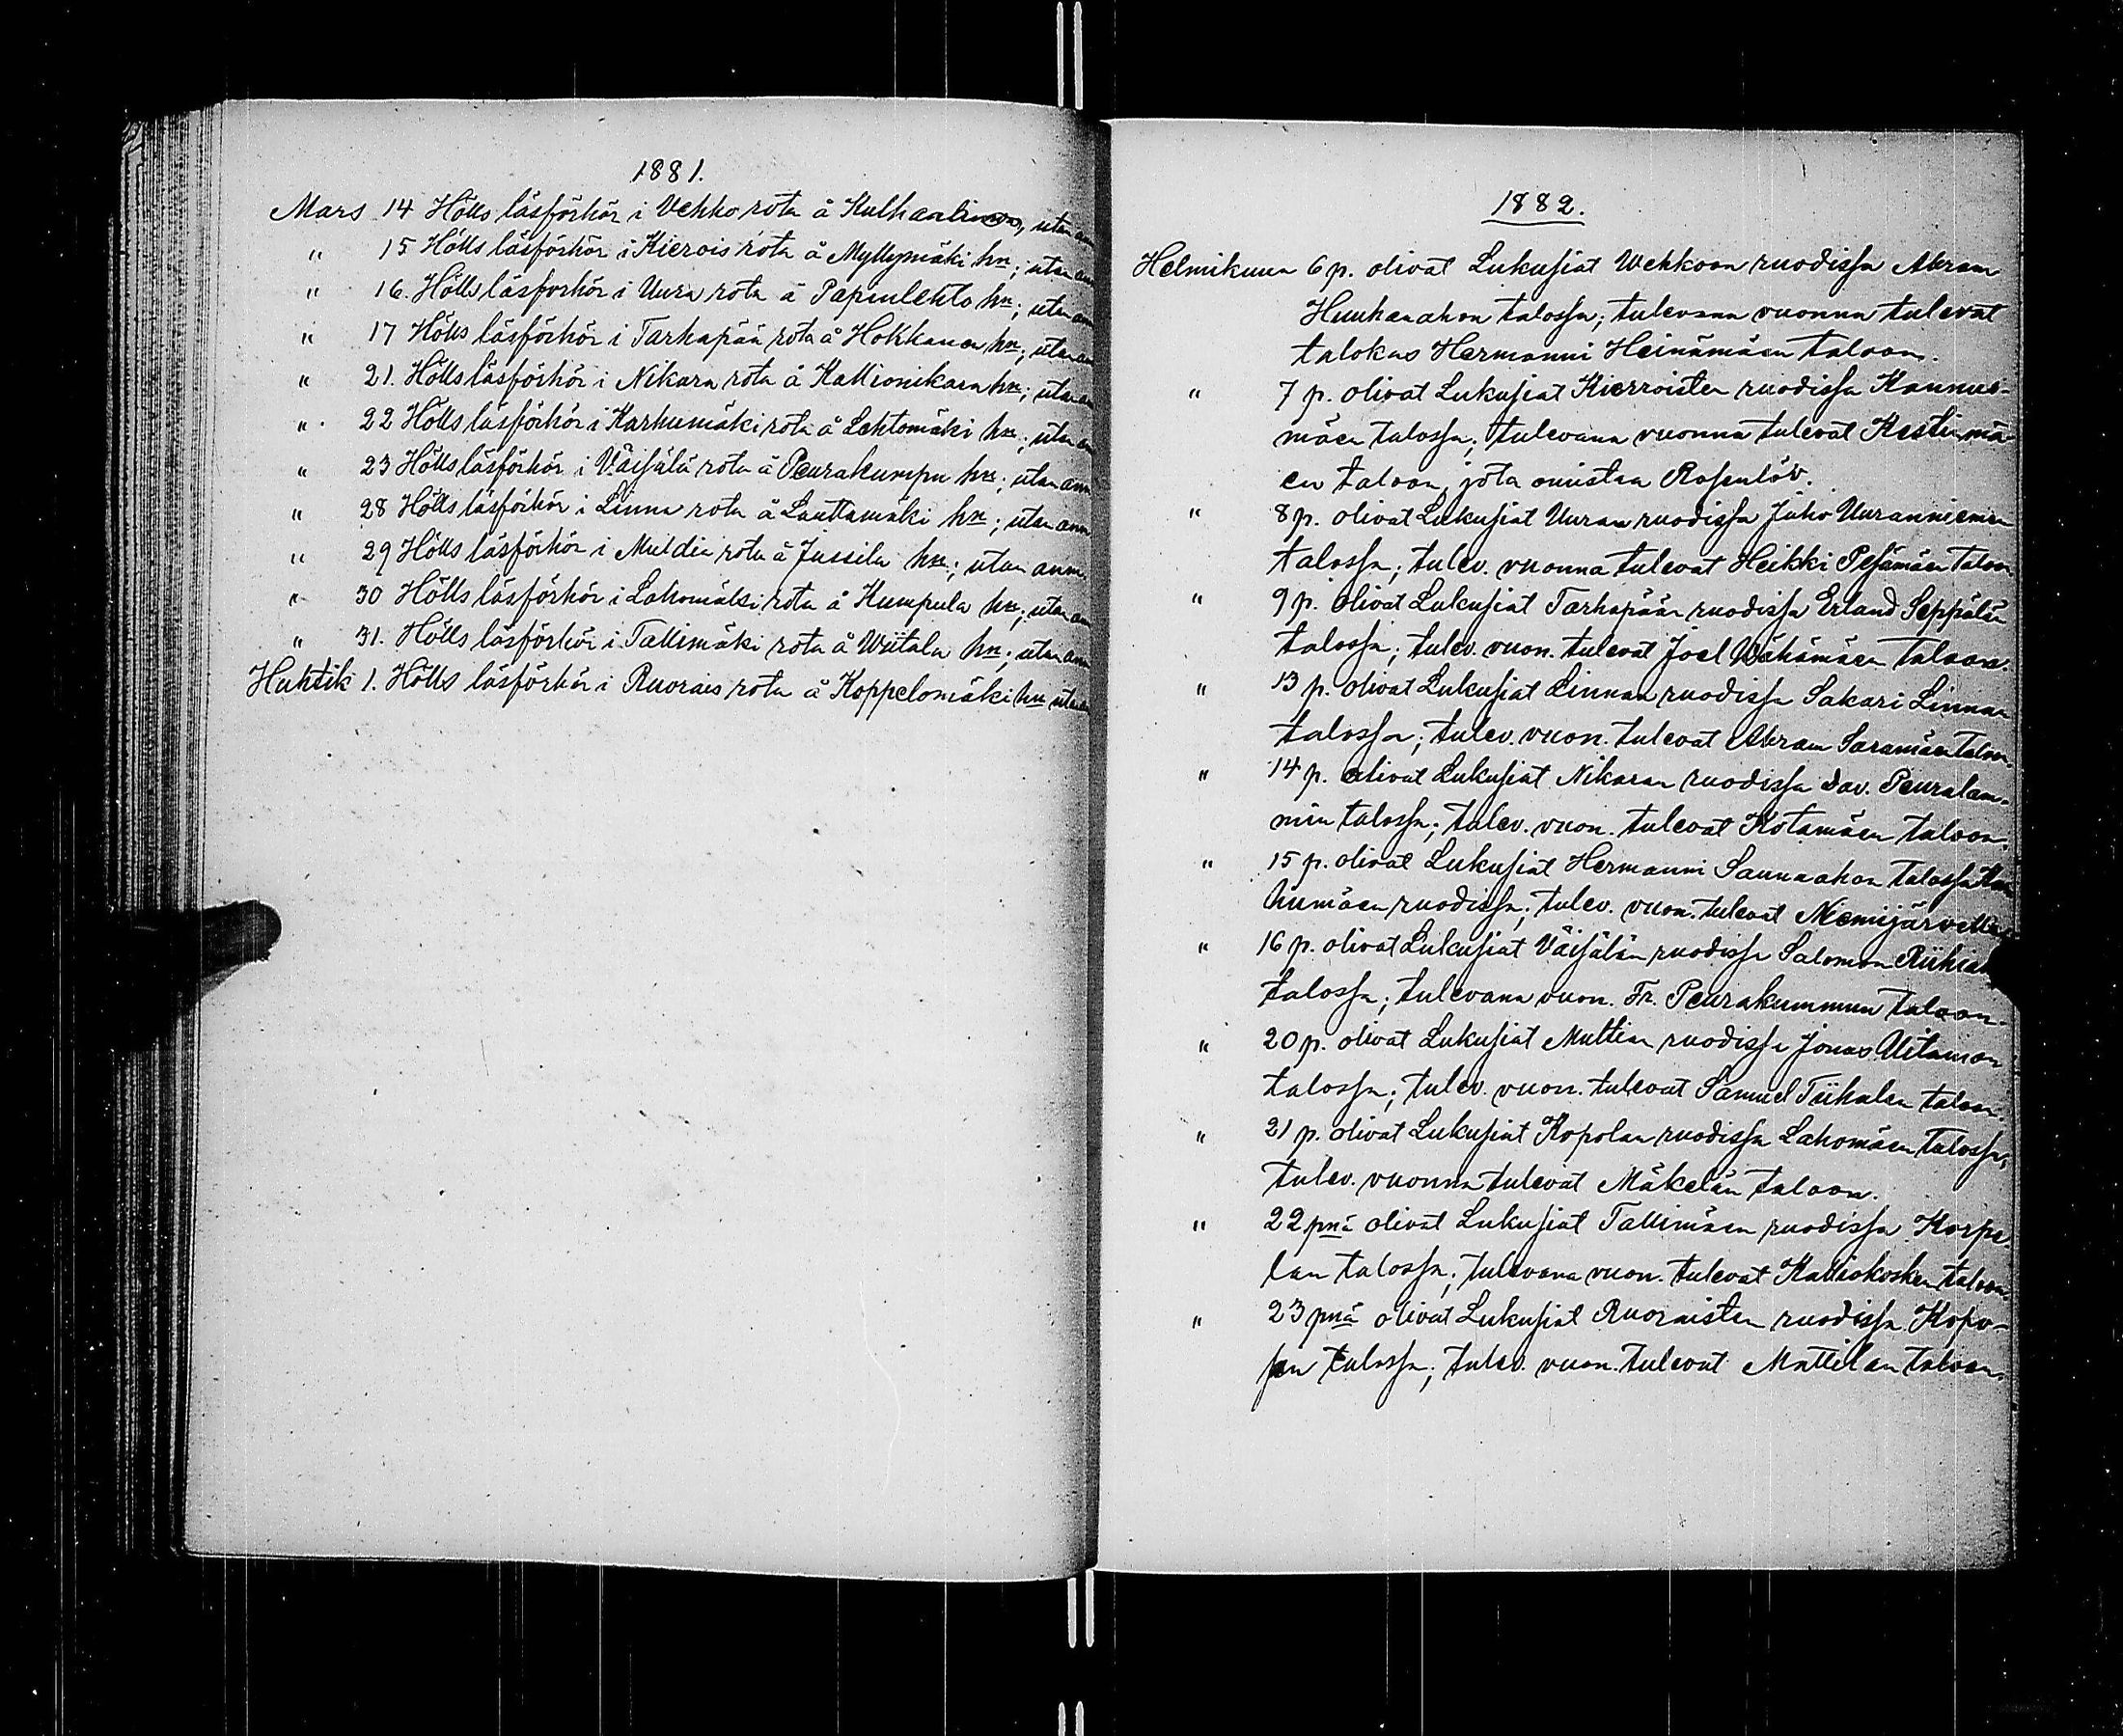 1881.
Mars 14 Hölls läsförhör i Vehko rota å Kulhanlinna, utan
" 15 Hölls läsförhör i Kierois rota å Myllymäki hn; utan
" 16. Hölls läsförhör i Uura rota å Papinlehto hn; utan
" 17 Hölls läsförhör i Tarhapää rota å Hokkanen hn; utan
" 21. Hölls läsförhör i Nikara rota å Kallionikara hn; utan
" 22 Hölls läsförhör i Karhumäki rota å Lehtomäki hn; utan
" 23 Hölls läsförhör i Väisälä rota å Peurakumpu hn; utan anm
" 28 Hölls läsförhör i Linna rota å Lauttamäki hn; utan anm
" 29 Hölls läsförhör i Muldia rota å Jussila hn; utan anm.
" 30 Hölls läsförhör i Lahomäki rota å Kumpula hn; utan
" 31. Hölls läsförhör i Tallimäki rota å Wiitala hn; utan
Huhtik 1. Hölls läsförhör i Ruorais rota å Koppelomäki hn utan
1882.
Helmikuun 6 p. olivat Lukusiat Wehkoon ruodissa Abram
Huuhanahon talossa; tulevana vuonna tulevat
talokas Hermanni Heinämäen taloon.
" 7 p. olivat Lukusiat Kierroisten ruodissa Kannus-
mäen talossa; tulevana vuonna tulevat Kestinmä
en taloon, jota omistaa Rosenlöv.
" 8 p. olivat Lukusiat Uuran ruodissa Juho Uuranniemen
talossa; tulev. vuonna tulevat Heikki Pesämäen taloon
" 9 p. olivat Lukusiat Tarhapään ruodissa Erland Seppälän
talossa; tulev. vuon. tulevat Joel Wähämäen taloon.
" 13 p. olivat Lukusiat Linnan ruodissa Sakari Linnan
talossa; tulev. vuon. tulevat Abram Saramäen taloon.
" 14 p. olivat Lukusiat Nikaran ruodissa Dav. Peuralam-
min talossa; tulev. vuon. tulevat Kotamäen taloon.
" 15 p. olivat Lukusiat Hermanni Saunaahon talossa Kar
humäen ruodissa; tulev. vuon. tulevat Niemijärvelle
" 16 p. olivat Lukusiat Väisälän ruodissa Salomon
talossa; tulevana vuon. Fr. Peurakummun taloon.
" 20 p. olivat Lukusiat Multian ruodissa Jonas Uitamon
talossa; tulev. vuon. tulevat Samuel Tiihalan taloon.
" 21 p. olivat Lukusiat Kopolan ruodissa Lahomäen talossa;
tulev. vuonna tulevat Mäkelän taloon.
" 22 pnä olivat Lukusiat Tallimäen ruodissa Korpe
lan talossa; tulevana vuon. tulevat Kalliokosken taloon.
" 23 pnä olivat Lukusiat Ruoraisten ruodissa Kopo-
sen talossa; tulev. vuon. tulevat Mattilan taloon.